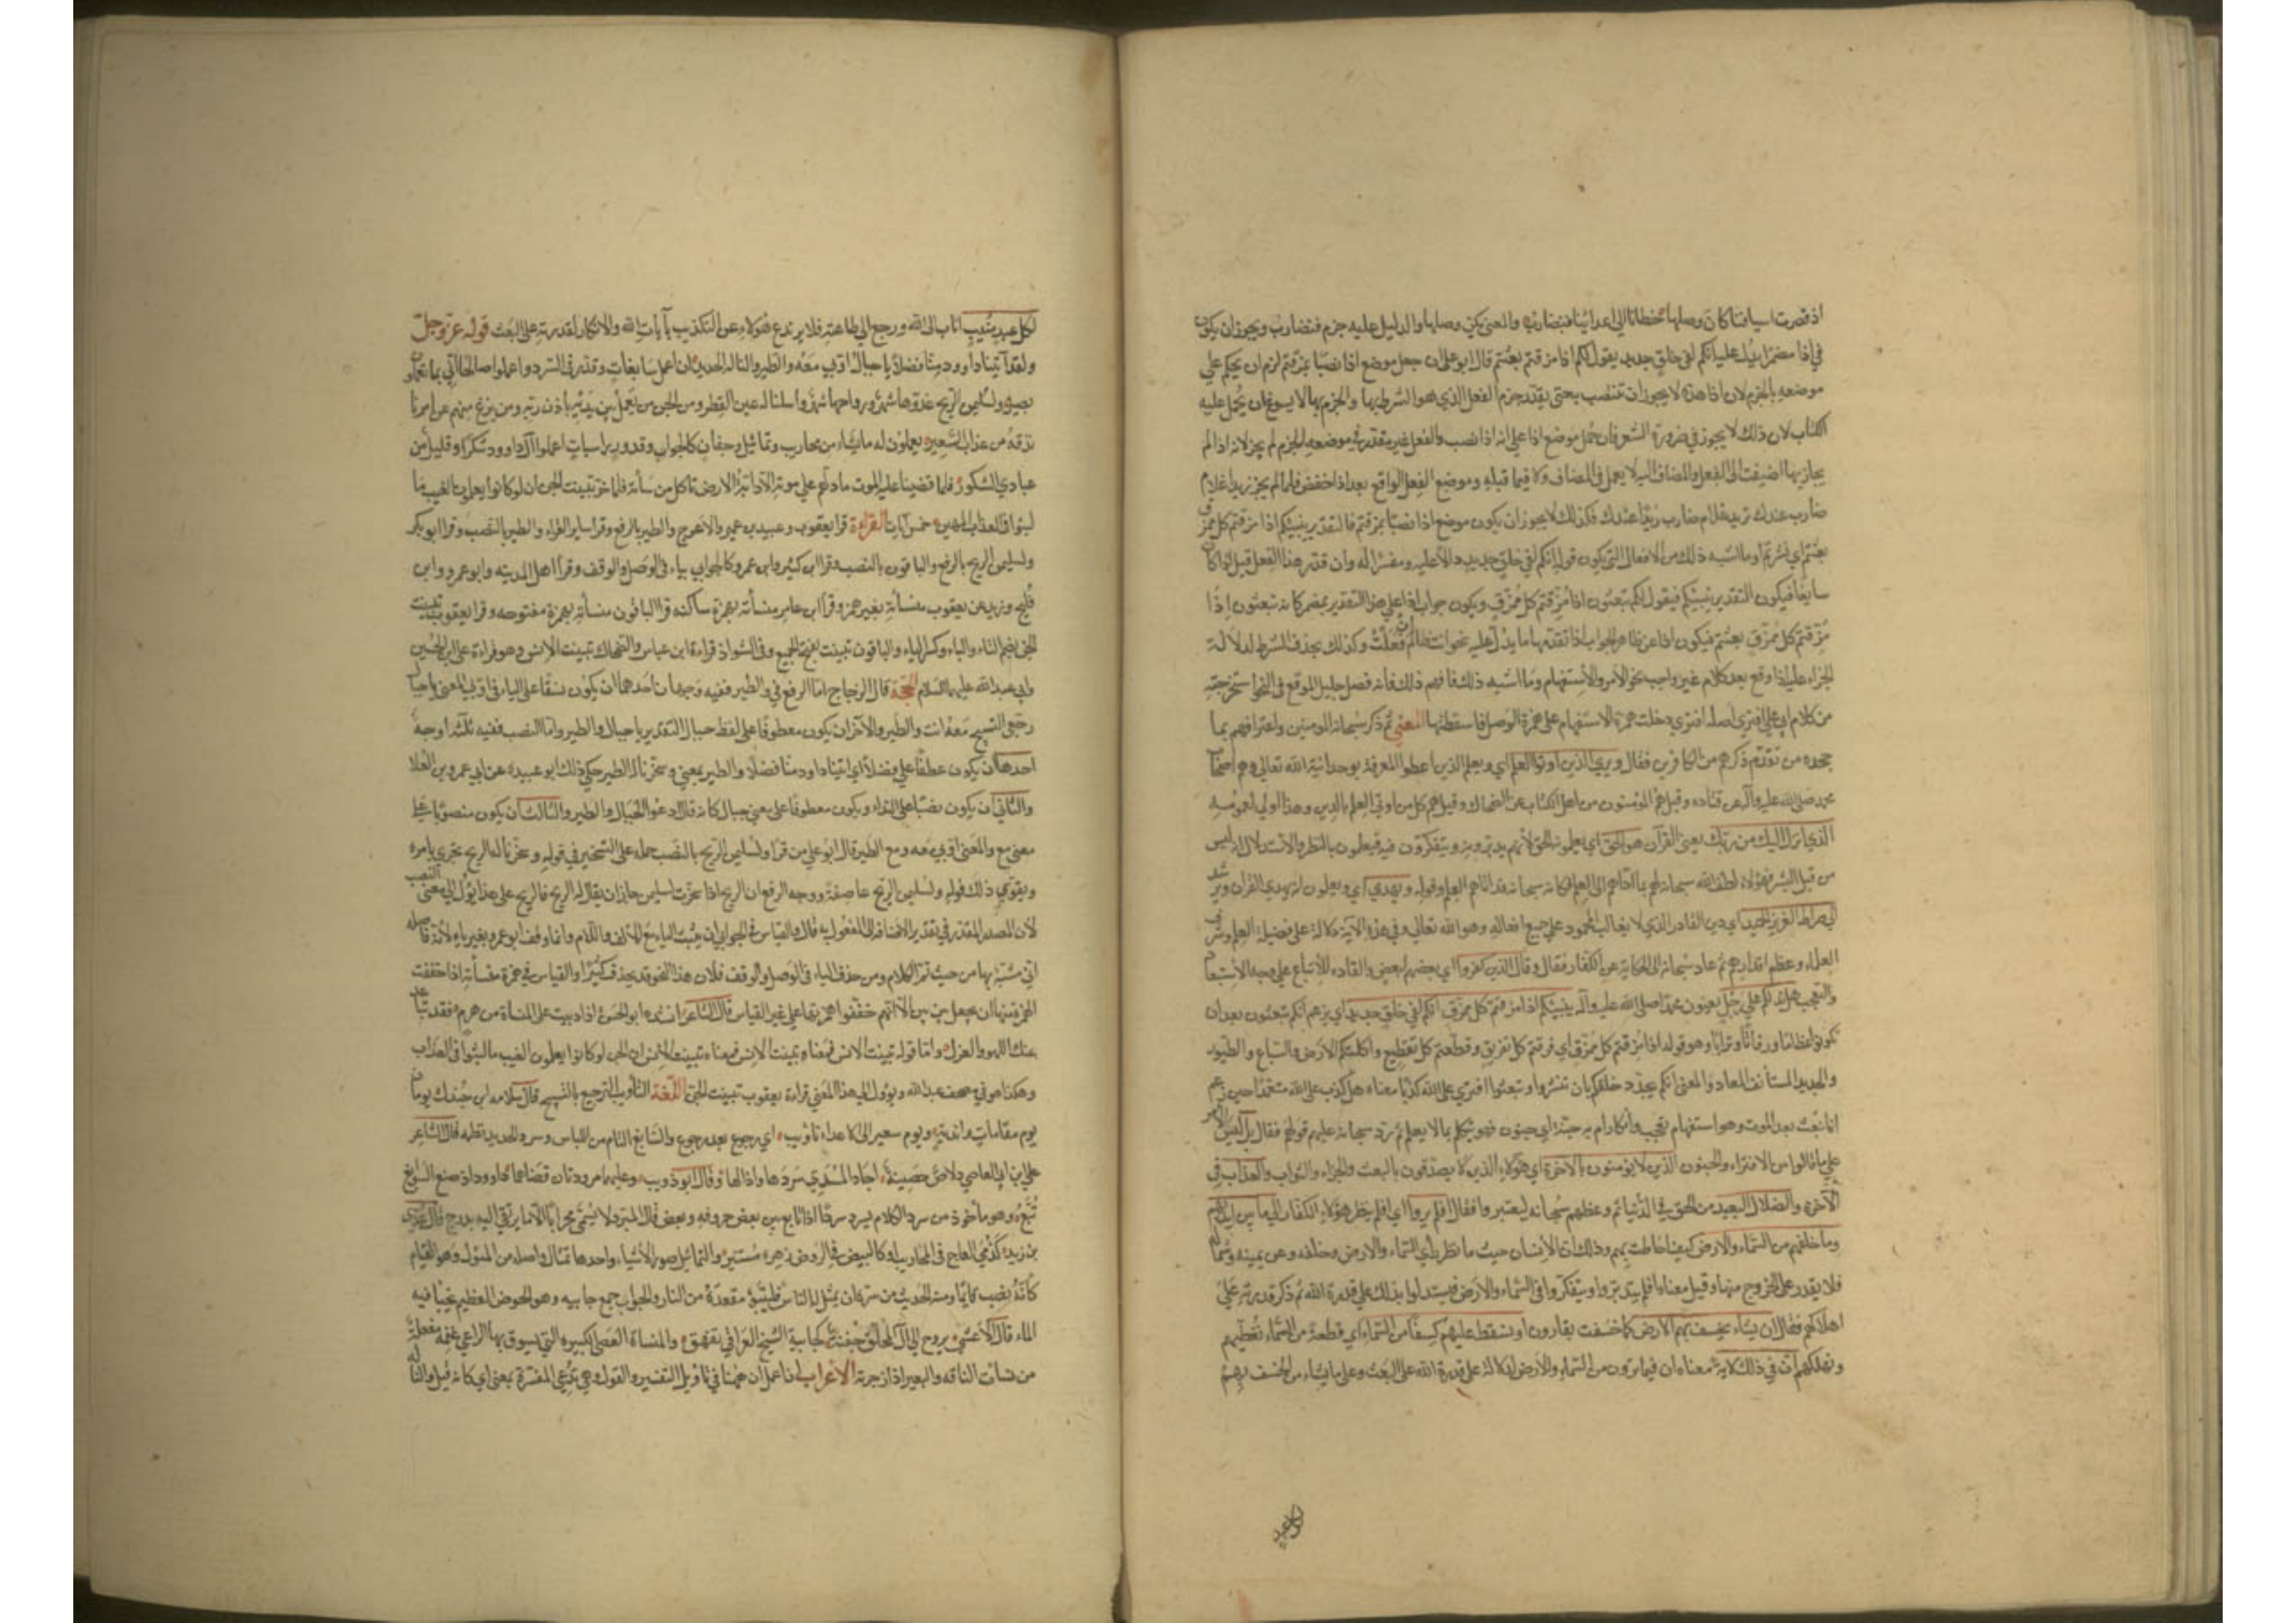 اذ قصرت اسيافنا كان وصلها خطانا الى اعدائنا فنضارب والمعنى يكن وصلها والدليل عليه جزم فنضارب ويجوز ان يكون
في اذا مضمر يدل عليه انكم لفي خلق جديد يقول لكم اذا مزقتم بعثتم قال ابو علي ان جعل موضع اذا نصبا بمزقتم لزم ان يحكم على
موضعه بالجزم لان اذا هذه لا يجوز ان تنتصب به حتى يقدر جزم الفعل الذي هو الشرط بها والجزم بها لا يسوغ ان يحمل عليه
الكتاب لان ذلك لا يجوز في ضرورة الشعر فان حمل موضع اذا على انه اذا نصب والفعل غير مقدر في موضعه الجزم لم يجز لانه اذا لم
يجاز بها اضيفت الى الفعل والمضاف اليه لا يعمل في المضاف ولا فيما قبله وموضع الفعل الواقع بعد اذا خفض فلما لم يجز زيدا غلام
ضارب عندك تريد غلام ضارب زيدا عندك فكذلك لا يجوز ان يكون موضع اذا نصبا بمزقتم فالتقدير ينبئكم اذا مزقتم كل ممزق
بعثتم اي نشرتم او ما اشبه ذلك من الافعال التي يكون قوله انكم لفي خلق جديد دالا عليه ومفسرا له وان قدر هذا الفعل قبل اذا كان
سايغا فيكون التقدير ينبئكم فيقول لكم تبعثون اذا مزقتم كل ممزق ويكون جواب اذا على هذا التقدير بمضمر كانه تبعثون اذا
مزقتم كل ممزق بعثتم فيكون اذا عن ظاهر الجواب اذا تقدمها ما يدل عليه نحو انت ظالم ان فعلت وكذلك يحذف الشرط لدلالة
الجزاء عليه اذا وقع بعد كلام غير واجب نحو الامر والاستفهام وما اشبه ذلك فافهم ذلك فانه فصل جليل الموقع في النحو استخرجته
من كلام ابي علي افترى اصله اافترى دخلت همزة الاستفهام على همزة الوصل فاسقطتها المعنى ثم ذكر سبحانه المومنين واعترافهم بما
جحده من تقدم ذكرهم من الكافرين فقال ويرى الذين اوتوا العلم اي ويعلم الذين اعطوا المعرفة بوحدانية الله تعالى وهم اصحاب
محمد صلى الله عليه وآله عن قتاده وقيل هم المؤمنون من اهل الكتاب عن الضحاك وقيل هم كل من اوتي العلم بالدين وهذا اولى لعمومه
الذي انزل اليك من ربك يعني القرآن هو الحق اي يعلمونه الحق لانهم يتدبرونه ويتفكرون فيه فيعلمون بالنظر والاستدلال انه ليس
من قبل البشر فهؤلاء لطف الله سبحانه لهم بما اداهم الى العلم فكانه سبحانه قد اتاهم العلم وقوله ويهدي اي ويعلمون انه يهدي القران ويرشد
الى صراط العزيز الحميد اي دين القادر الذي لا يغالب المحمود على جميع افعاله وهو الله تعالى وفي هذه الآية دلالة على فضيلة العلم وشرف
العلماء وعظم اقدارهم ثم عاد سبحانه الى الحكاية عن الكفار فقال وقال الذين كفروا اي بعضهم لبعض والقاده للاتباع على وجه الاستبعاد
والتعجب هل ندلكم على رجل يعنون محمدا صلى الله عليه وآله ينبئكم اذا مزقتم كل ممزق انكم لفي خلق جديد اي يزعم انكم تبعثون بعد ان
تكونوا عظاما ورفاتا وترابا وهو قوله اذا مزقتم كل ممزق اي فرقتم كل تفريق وقطعتم كل تقطيع واكلتكم الارض والسباع والطيور
والجديد المستأنف المعاد والمعنى انكم يجدد خلقكم بان تنشروا وتبعثوا افترى على الله كذبا معناه هل كذب على الله متعمدا حين زعم
انا نبعث بعد الموت وهو استفهام تعجب وانكار ام به جنة اي جنون فهو يتكلم بما لا يعلم ثم رد سبحانه عليهم قولهم فقال بل ليس الامر
على ما قالوا من الافتراء والجنون الذين لا يؤمنون بالآخرة اي هؤلاء الذين لا يصدقون بالبعث والجزاء والثواب والعذاب في
الآخرة والضلال البعيد من الحق في الدنيا ثم وعظهم سبحانه ليعتبروا فقال افلم يروا اي افلم ينظر هؤلاء الكفار الى ما بين ايديهم
وما خلفهم من السماء والارض كيف احاطت بهم وذلك ان الانسان حيث ما نظر رأى السماء والارض وخلفه وعن يمينه وشماله
فلا يقدر على الخروج منها وقيل معناه افلم يتدبروا ويتفكروا في السماء والارض فيستدلوا بذلك على قدرة الله ثم ذكر قدرته على
اهلاكهم فقال ان نشاء نخسف بهم الارض كما خسفت بقارون او نسقط عليهم كسفا من السماء اي قطعة من السماء تغطيهم
وتهلكهم ان في ذلك لاية معناه ان فيما يرون من السماء والارض لدلالة على قدرة الله على البعث وعلى ما يشاء من الخسف بهم
لكل عبد منيب اناب الى الله ورجع الى طاعته فلا يرتدع هؤلاء عن التكذيب بآيات الله والانكار لقدرته على البعث قوله عز وجل
ولقد آتينا داوود منا فضلا يا جبال اوبي معه والطير والنا له الحديد ان اعمل سابغات وقدر في السرد واعملوا صالحا اني بما تعملون
بصير ولسليمن الريح غدوها شهر ورواحها شهر واسلنا له عين القطر ومن الجن من يعمل بين يديه باذن ربه ومن يزغ منهم عن امرنا
نذقه من عذاب السعير يعملون له ما يشاء من محاريب وتماثيل وجفان كالجواب وقدور راسيات اعملوا آل داوود شكرا وقليل من
عبادي الشكور فلما قضينا عليه الموت ما دلهم على موته الا دابة الارض تاكل من سأته فلما خر تبينت الجن ان لو كانوا يعلمون الغيب ما
لبثوا في العذاب المهين خمس آيات القراءة قرا يعقوب وعبيد بن عمير والاعرج والطير بالرفع وقرا ساير القراء والطير بالنصب وقرا ابو بكر
ولسليمن الريح بالرفع والباقون بالنصب وقرا ابن كثير وابن عمرو كالجوابي بياء في الوصل والوقف وقرا اهل المدينه وابو عمرو وابن
فليح وزيد عن يعقوب منساته بغير همز وقرا ابن عامر منسأته بهمزة ساكنه وقرا الباقون منسأته بهمزة مفتوحه وقرا يعقوب تبينت
الجن بضم التاء والباء وكسر الياء والباقون تبينت بفتح الجميع وفي الشواذ قراءة ابن عباس والضحاك تبينت الانس وهو قراءة علي بن الحسين
وابي عبد الله عليهما السلام الحجة قال الزجاج اما الرفع في والطير ففيه وجهان احدهما ان يكون نسقا على الياء في اوبي المعنى يا جبال
رجعي التسبيح معه انت والطير والآخر ان يكون معطوفا على لفظ جبال التقدير يا جبال والطير واما النصب ففيه ثلثة اوجه
احدها ان يكون عطفا على فضلا اي اتينا داود منا فضلا والطير بمعنى وسخرنا له الطير حكى ذلك ابو عبيده عن ابي عمرو بن العلا
والثاني ان يكون نصبا على النداء ويكون معطوفا على معنى جبال كانه قال ادعوا الجبال والطير والثالث ان يكون منصوبا على
معنى مع والمعنى اوبي معه ومع الطير قال ابو علي من قرا ولسليمن الريح بالنصب حمله على التسخير في قوله وسخرنا له الريح تجري بامره
ويقوي ذلك قوله ولسليمن الريح عاصفة ووجه الرفع ان الريح اذا سخرت لسليمن جاز ان يقال له الريح فالريح على هذا يؤل الى معنى النصب
لان المصدر المقدر في تقدير الاضافه الى المفعول به قال والقياس في الجوابي ان يثبت الياء مع الالف واللام وانما وقف ابو عمرو بغير ياء لانه فاصله
اني مشبه بها من حيث تم الكلام ومن حذف الياء في الوصل والوقف فلان هذا النحو قد يحذف كثيرا والقياس في همزة منسأته اذا خففت
الهمزة منها ان يجعل بين بين الا انهم خففوا همزتها على غير القياس قال الشاعر انشده ابو الحسن اذا دببت على المنساة من هرم فقد تباعد
عنك اللهو والغزل واما قوله تبينت الانس فمعناه تبينت الانس فمعناه تبينت الانس ان الجن لو كانوا يعلمون الغيب ما لبثوا في العذاب
وهكذا هو في مصحف عبد الله ويؤول الى هذا المعنى قراءة يعقوب تبينت الجن اللغة التأويب الترجيع بالتسبيح قال سلامه ابن جندل يومان
يوم مقامات واندية ويوم سعير الى الاعداء تاويب اي رجوع بعد رجوع والسابغ التام من اللباس وسرد الحديد نظمه قال الشاعر
على ابن ابي العاصي دلاص حصينة اجاد المسدي سردها واذالها وقال ابو ذويب وعليهما مسرودتان قضاهما داوود او صنع السوابغ
تبع وهو مأخوذ من سرد الكلام يسرد سردا اذا تابع بين بعض حروفه وبعض قال المبرد لا يسمى محرابا الا ما يرتقى اليه بدرج قال عدي
بن زيد كدمى العاج في المحاريب او كالبيض في الروض زهره مستنير والتماثيل صور الاشياء واحدها تمثال واصله من المثول وهو القيام
كانه نصب قايما ومنه الحديث من سره ان يمثل له الناس فليتبؤ مقعده من النار والجواب جمع جابيه وهو الحوض العظيم يجبا فيه
الماء قال الاعشى يروح على آل المحلق جفنة كجابية الشيخ العراقي تفهق والمنساة العصى الكبيره التي يسوق بها الراعي غنمه مفعلة
من نسأت الناقه والبعير اذا زجرته الاعراب ان اعمل ان ههنا في تاويل التفسير والقول وهي تدعى المفسرة بمعنى اي كانه قيل والنا له